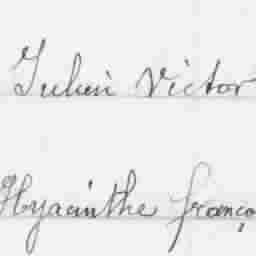 Julien Victor
Hyacinthe franço